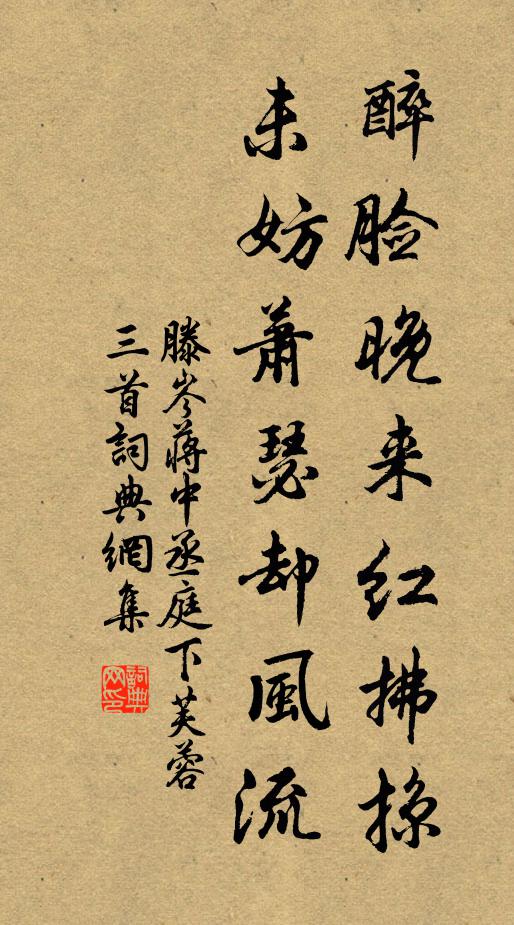 醉脸晚来红拂掠
未妨蕭瑟却風流
滕岑蔣中丞庭下芙蓉
三首詞典網集
詞典
网印